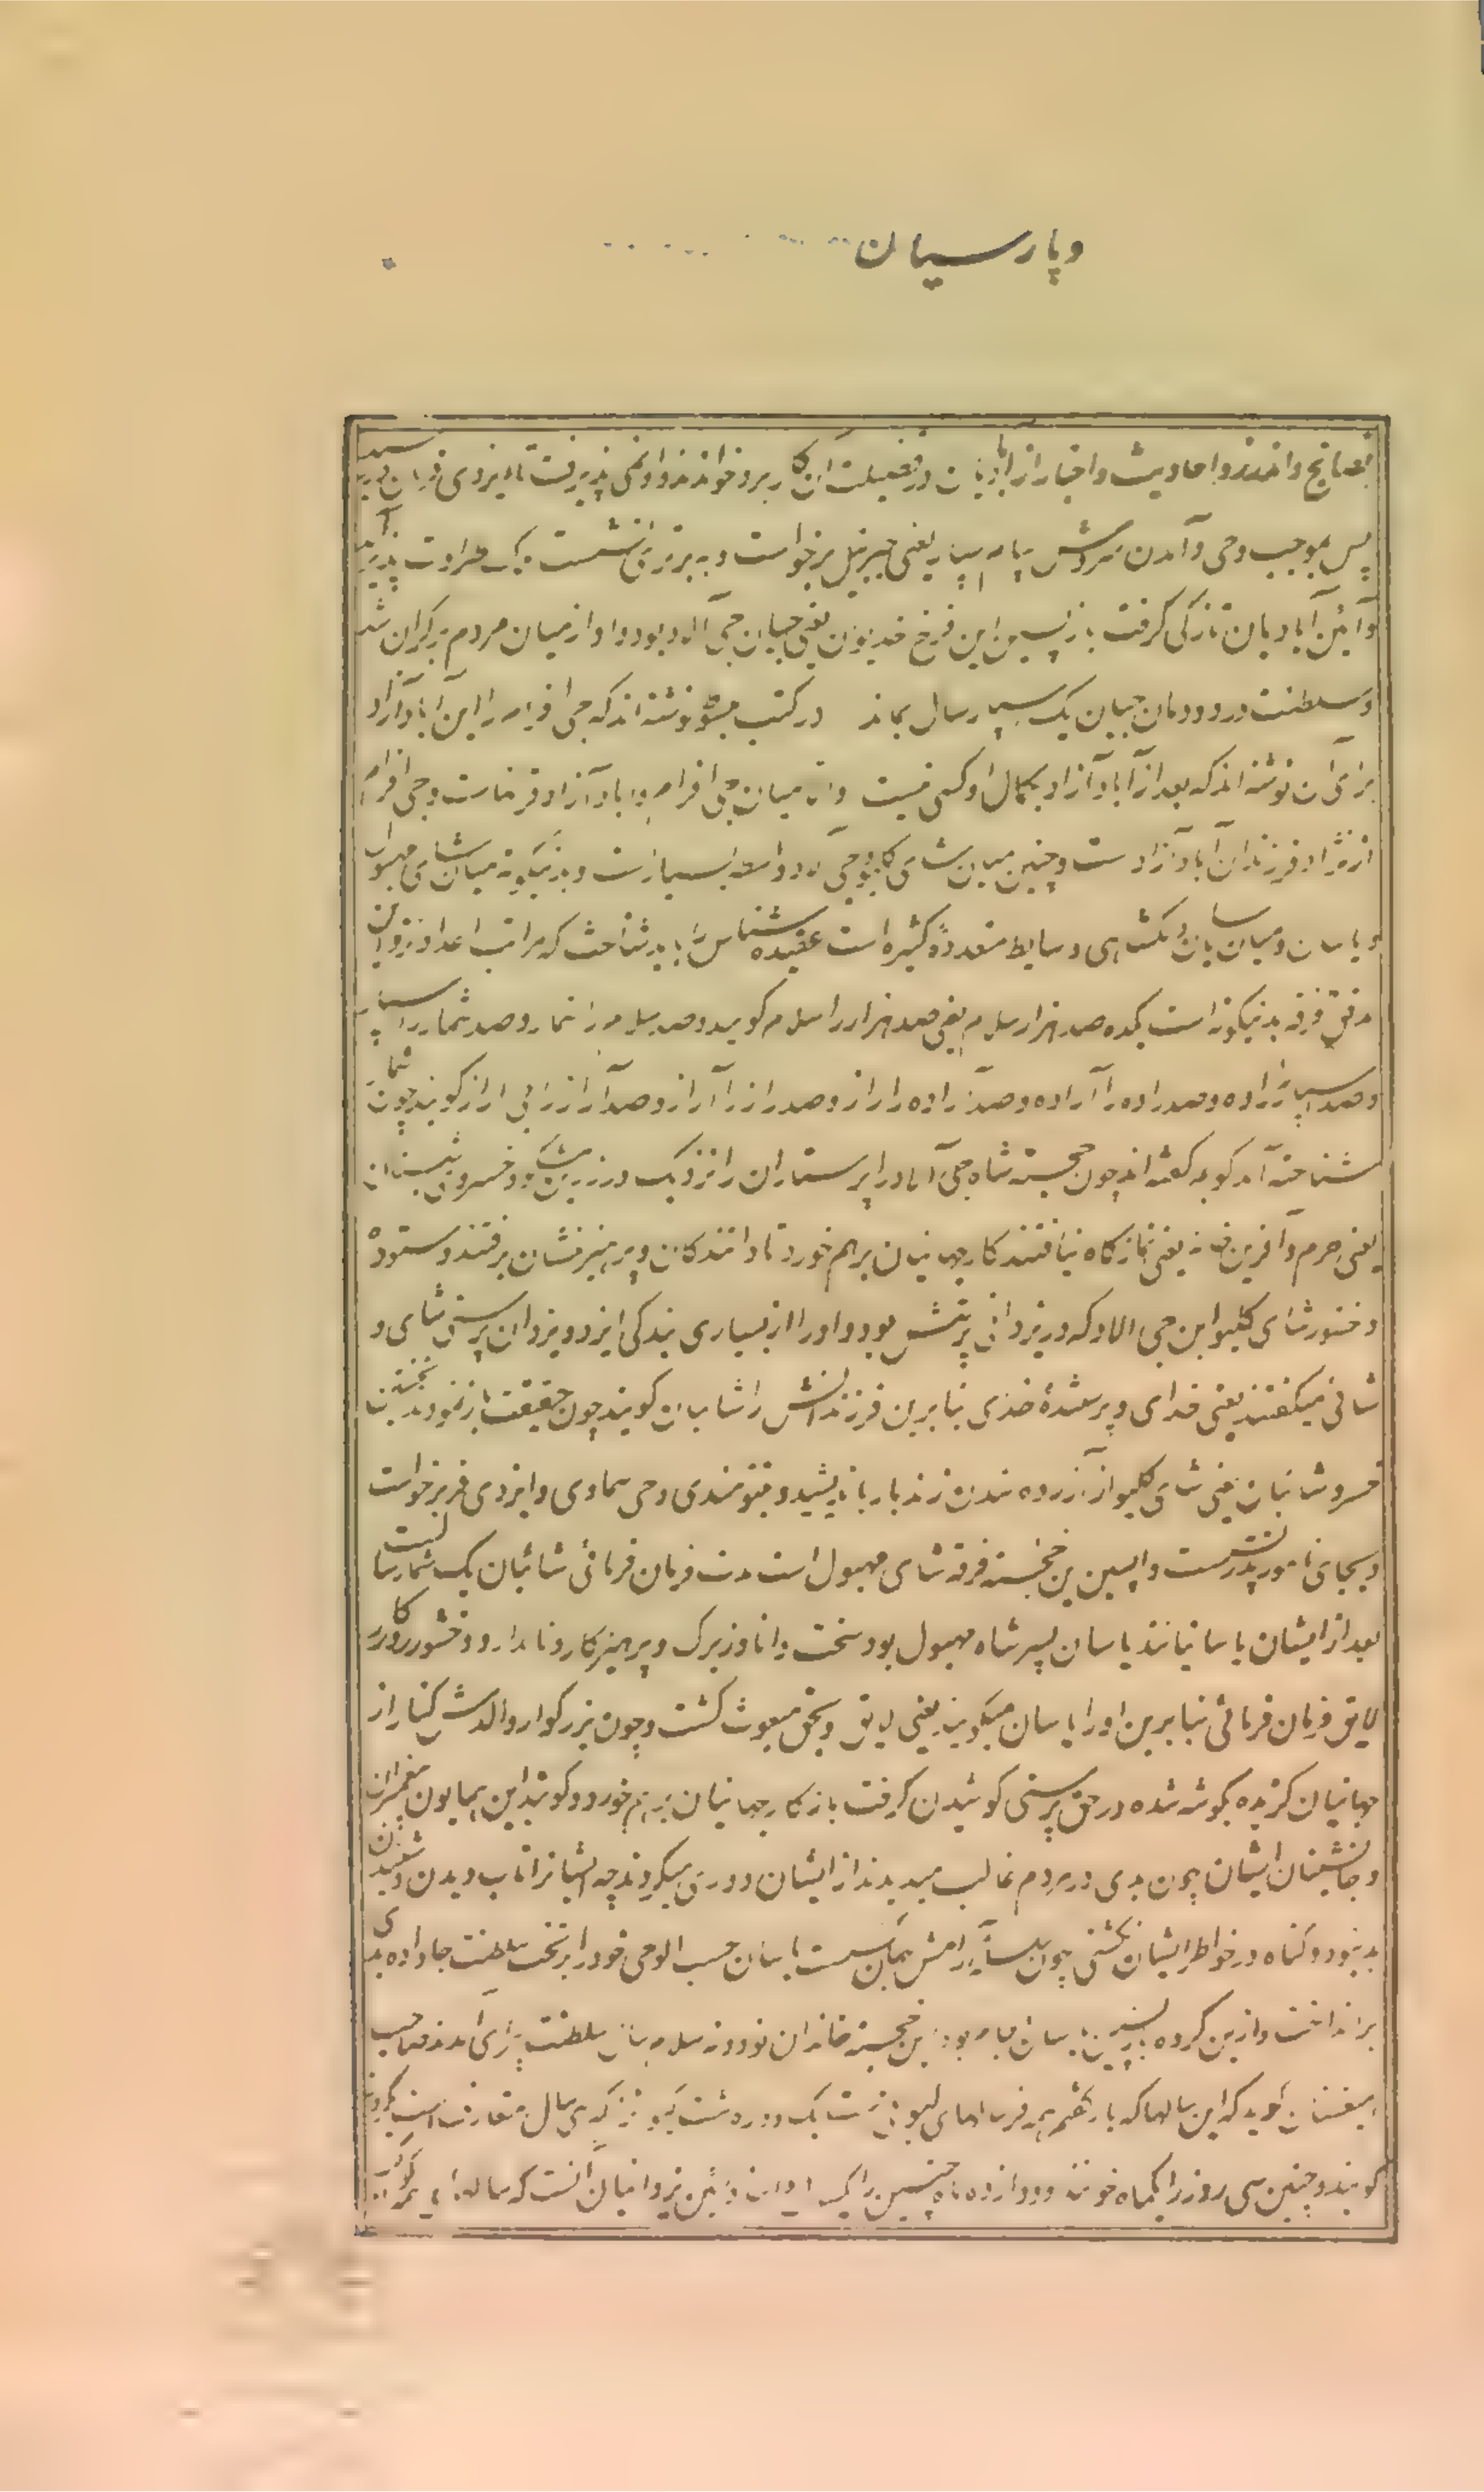 وپارسیان
نصایح و اندرز و احادیث و اخبار از آبادیان در فضیلت این کار برو خواندند و او نمی پذیرفت تا ایزدی فرمان رسید
پس بموجب وحی و آمدن سروش یعنی جبرئیل برخواست و به برتری نشست طراوت پذیر آمد
و آئین آبادیان تازگی گرفت بازپسین این فرخ خدیوان یعنی جیان جی آلاد بود و او از میان مردم برکران شد
و سلطنت در دودمان جیان یک سپار سال بماند در کتب نوشته اند که جی افرام را ابن آباد آزاد
برای آن نوشته اند که بعد از آباد آزاد بکمال او کسی نیست و میان جی افرام و آباد آزاد قرنهاست و جی افرام
از نژاد فرزندان آباد آزاد ست و چنین میان شای کلیو و جی آلاد واسطه بسیارست و بدینگونه میان شای مهبول
و یاسان و میان یاسان و گلشاهی وسایط متعدده کثیره است عقیده شناس را باید شناخت که مراتب اعداد نزد این
فرقه بدینگونه است که ده صد هزار را سلام گویند و صد سلام را شمار و صد شمار را اسپار
و صد اسپار را راده و صد راده را آراده و صد آراده را راز و صد راز را آراز و صد آراز را بی آراز گویند چون شمار
شناخته آمد گویم گفته اند چون خجسته شاه جی آلاد را پرستاران و نزدیک در و خسروی شبستان
یعنی حرم و آفرین خانه یعنی نمازگاه نیافتند کار جهانیان برهم خورد تا دانندگان و پرهیزمنشان برفتند و ستوده
وخشور شای کلیو ابن جی الاد که در یزدانی پرستش بود و او را از بسیاری بندگی ایزد و یزدان پرستی شای و
شائی میگفتند یعنی خدای و پرستندۀ خدای بنابرین فرزندانش را شائیان گویند چون حقیقت باز نمودند نخستین
خسرو شائیان یعنی شای کلیو از آزرده شدن زندبار باندیشید و بنیرومندی وحی سماوی و ایزدی فر برخواست
و بجای نامور پدر نشست و اپسین این خجسته فرقه شای مهبول است مدت فرمان فرمائی شائیان یک شمار سالست
بعد از ایشان یاسانیانند یاسان پسر شاه مهبول بود سخت دانا و زیرک و پرهیزکار و نامدار و وخشور روزگار
لایق فرمان فرمائی بنابرین او را یاسان میگویند یعنی لایق و بحق مبعوث گشت و چون بزرگوار والدش کنار از
جهانیان گزیده بگوشه شده در حق پرستی کوشیدن گرفت باز کار جهانیان برهم خورد و گویند این همایون پیغمبران
و جانشینان ایشان چون بدی در مردم غالب میدیدند از ایشان دوری میکردند چه ایشانرا تاب دیدن و شنیدن
بد نبود و گناه در خواطر ایشان نگشتی چون آرامش یاسان حسب الوحی خود را بر تخت سلطنت جا داده بدی
برانداخت و ازین گروه بازپسین یاسان آجام بود این خجسته خاندان نود و نه سلام سال سلطنت پیرای آمدند صاحب
دبستان گوید که این سالها که یاد کردیم همه فرسالهای کیوانی ست یک دوره گشت کیوان که سی سال متعارف است یکروز
گویند و چنین سی روز را یکماه خوانند و دوازده ماه چنین را یکسال و آئین یزدانیان آنست که سال